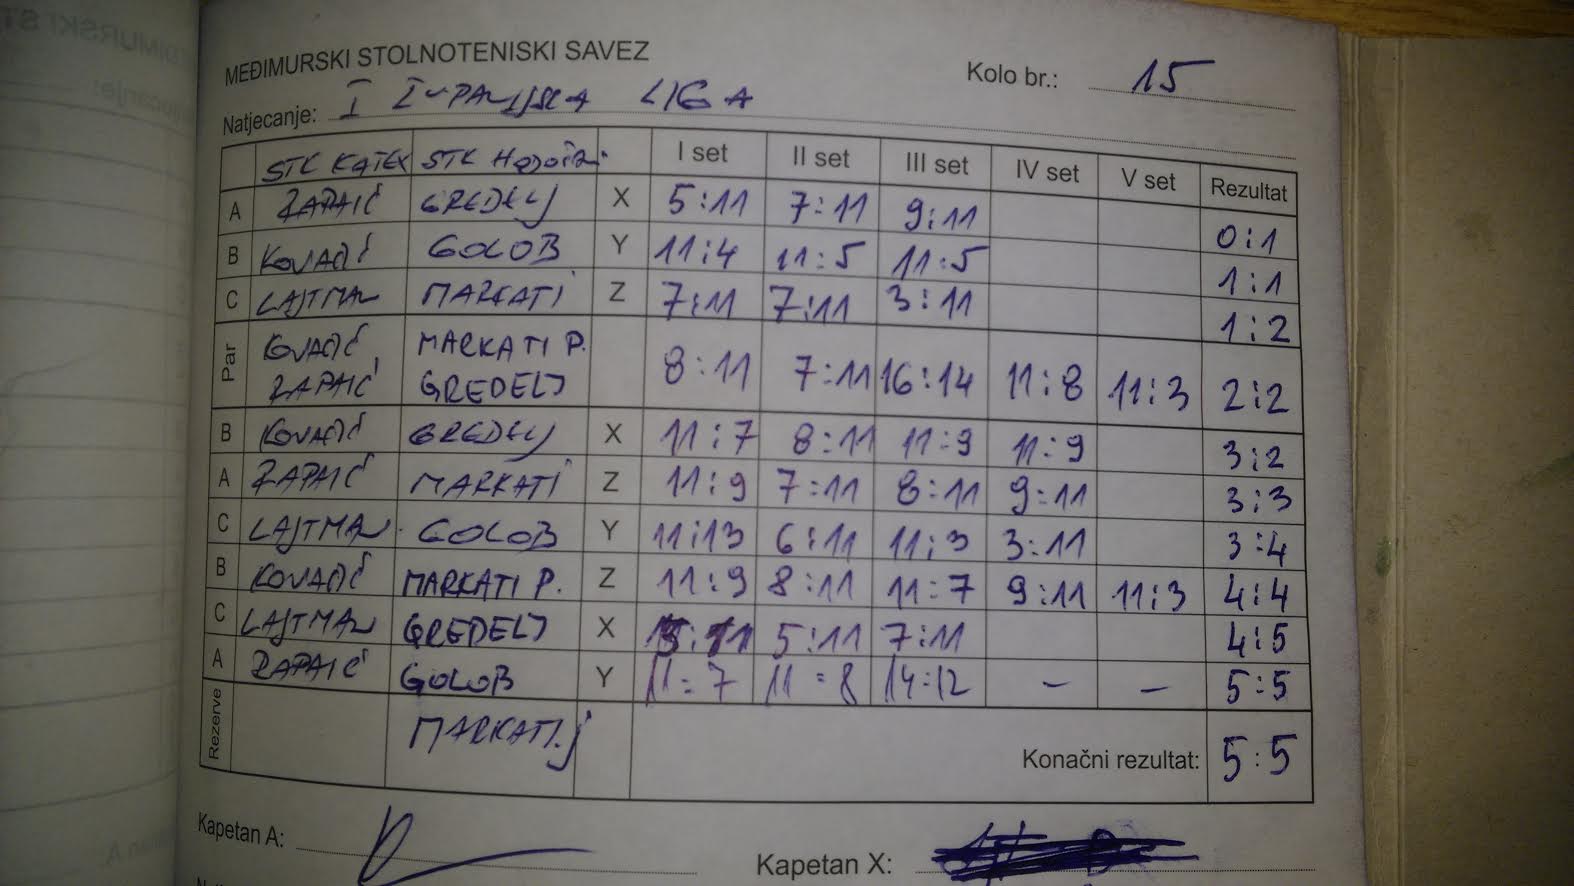 MEĐIMURSKI STOLNOTENISKI SAVEZ
Kolo br.: 15
Natjecanje: I ŽUPANIJSKA LIGA
STK KATEX STK I set II set III set IV set V set Rezultat
A ZAPAIĆ GREDELJ X 5:11 7:11 9:11 0:1
B KOVAČIĆ GOLOB Y 11:4 11:5 11:5 1:1
C LAJTMAN MARKATI Z 7:11 7:11 3:11 1:2
Par KOVAČIĆ, MARKATI P.
ZAPAIĆ GREDELJ 8:11 7:11 16:14 11:8 11:3 2:2
B KOVAČIĆ GREDELJ X 11:7 8:11 11:9 11:9 3:2
A ZAPAIĆ MARKATI Z 11:9 7:11 8:11 9:11 3:3
C LAJTMAN GOLOB Y 11:13 6:11 11:3 3:11 3:4
B KOVAČIĆ MARKATI P. Z 11:9 8:11 11:7 9:11 11:3 4:4
C LAJTMAN GREDELJ X 5:11 7:11 4:5
A ZAPAIĆ GOLOB Y 11:7 11:8 14:12 – – 5:5
Rezerve MARKATI J Konačni rezultat: 5:5
Kapetan A:
Kapetan X: